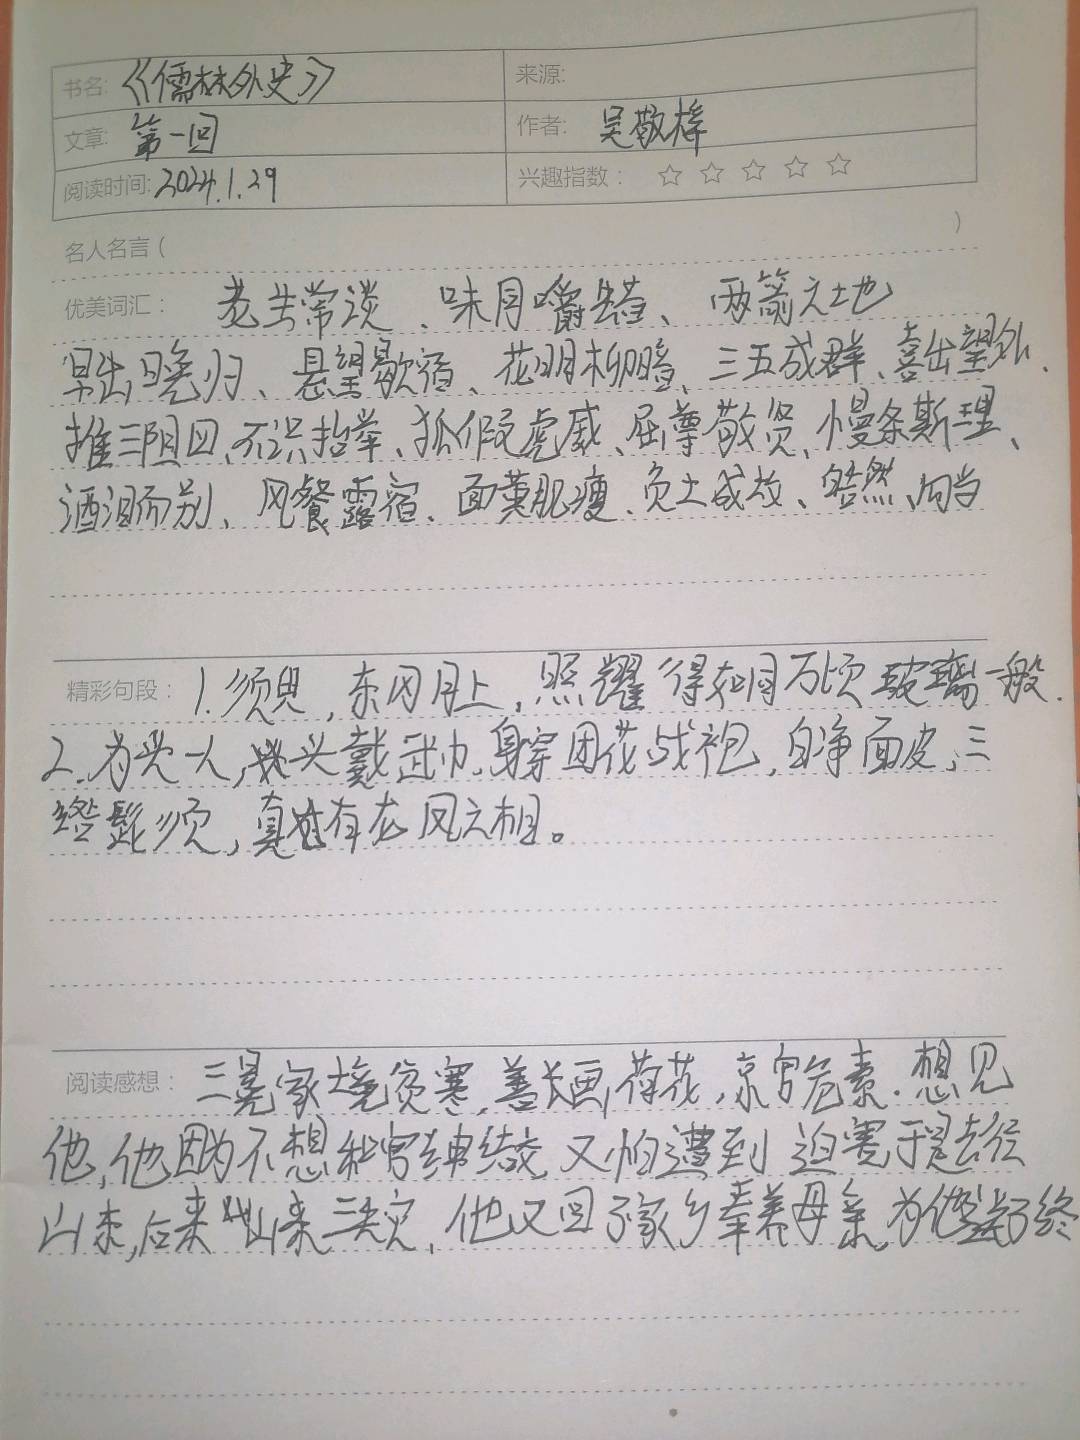 书名: 《儒林外史》 来源:
文章: 第一回 作者: 吴敬梓
阅读时间: 2024.1.29 兴趣指数: ☆ ☆ ☆ ☆ ☆
名人名言 ( )
优美词汇: 老生常谈、味同嚼蜡、两箭之地
早出晚归、悬望歇宿、花明柳暗、三五成群、喜出望外、
推三阻四、不识抬举、狐假虎威、屈尊敬贤、慢条斯理、
洒泪而别、风餐露宿、面黄肌瘦、负土成坟、皓然、向当
精彩句段: 1.须臾,东风月上,照耀得如同万顷玻璃一般.
2.为头一人,头戴武巾,身穿团花战袍,白净面皮,三
绺髭须,真有龙凤之相。
阅读感想: 王冕家境贫寒,善长画荷花,京官危素.想见
他,他因为不想和官绅结交,又怕遭到迫害于是去往
山东,后来山东三灾,他又回了家乡奉养母亲,为他送终